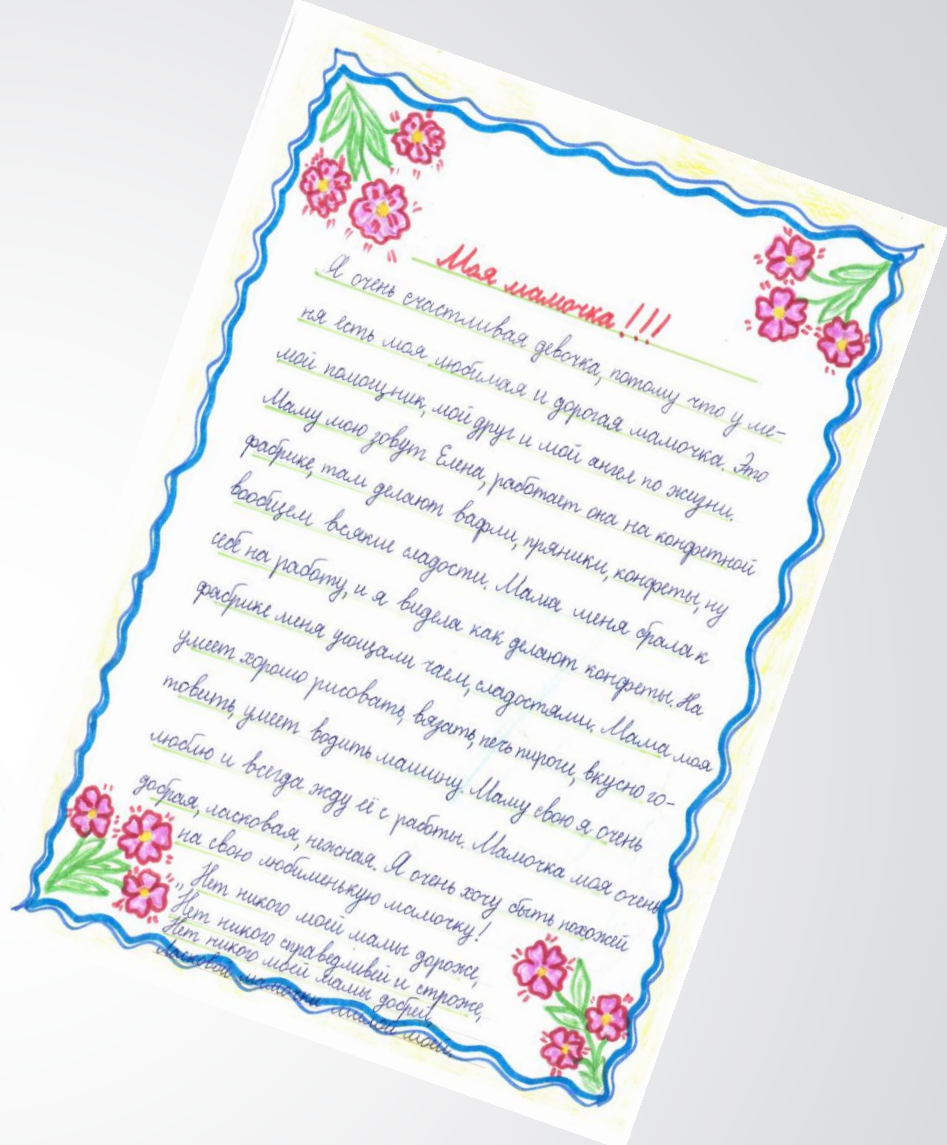 Моя мамочка!!!
Я очень счастливая девочка, потому что у ме-
ня есть моя любимая и дорогая мамочка. Это
мой помощник, мой друг и мой ангел по жизни.
Маму мою зовут Елена, работает она на конфетной
фабрике, там делают вафли, пряники, конфеты, ну
вообщем всякие сладости. Мама меня брала к
себе на работу, и я видела как делают конфеты. На
фабрике меня угощали чаем, сладостями. Мама моя
умеет хорошо рисовать, вязать, печь пироги, вкусно го-
товить, умеет водить машину. Маму свою я очень
люблю и всегда жду её с работы. Мамочка моя очень
добрая, ласковая, нежная. Я очень хочу быть похожей
на свою любименькую мамочку!
„Нет никого моей мамы дороже,
Нет никого справедливей и строже,
Нет никого моей мамы добрей,
Ласковой мамочки милой моей.